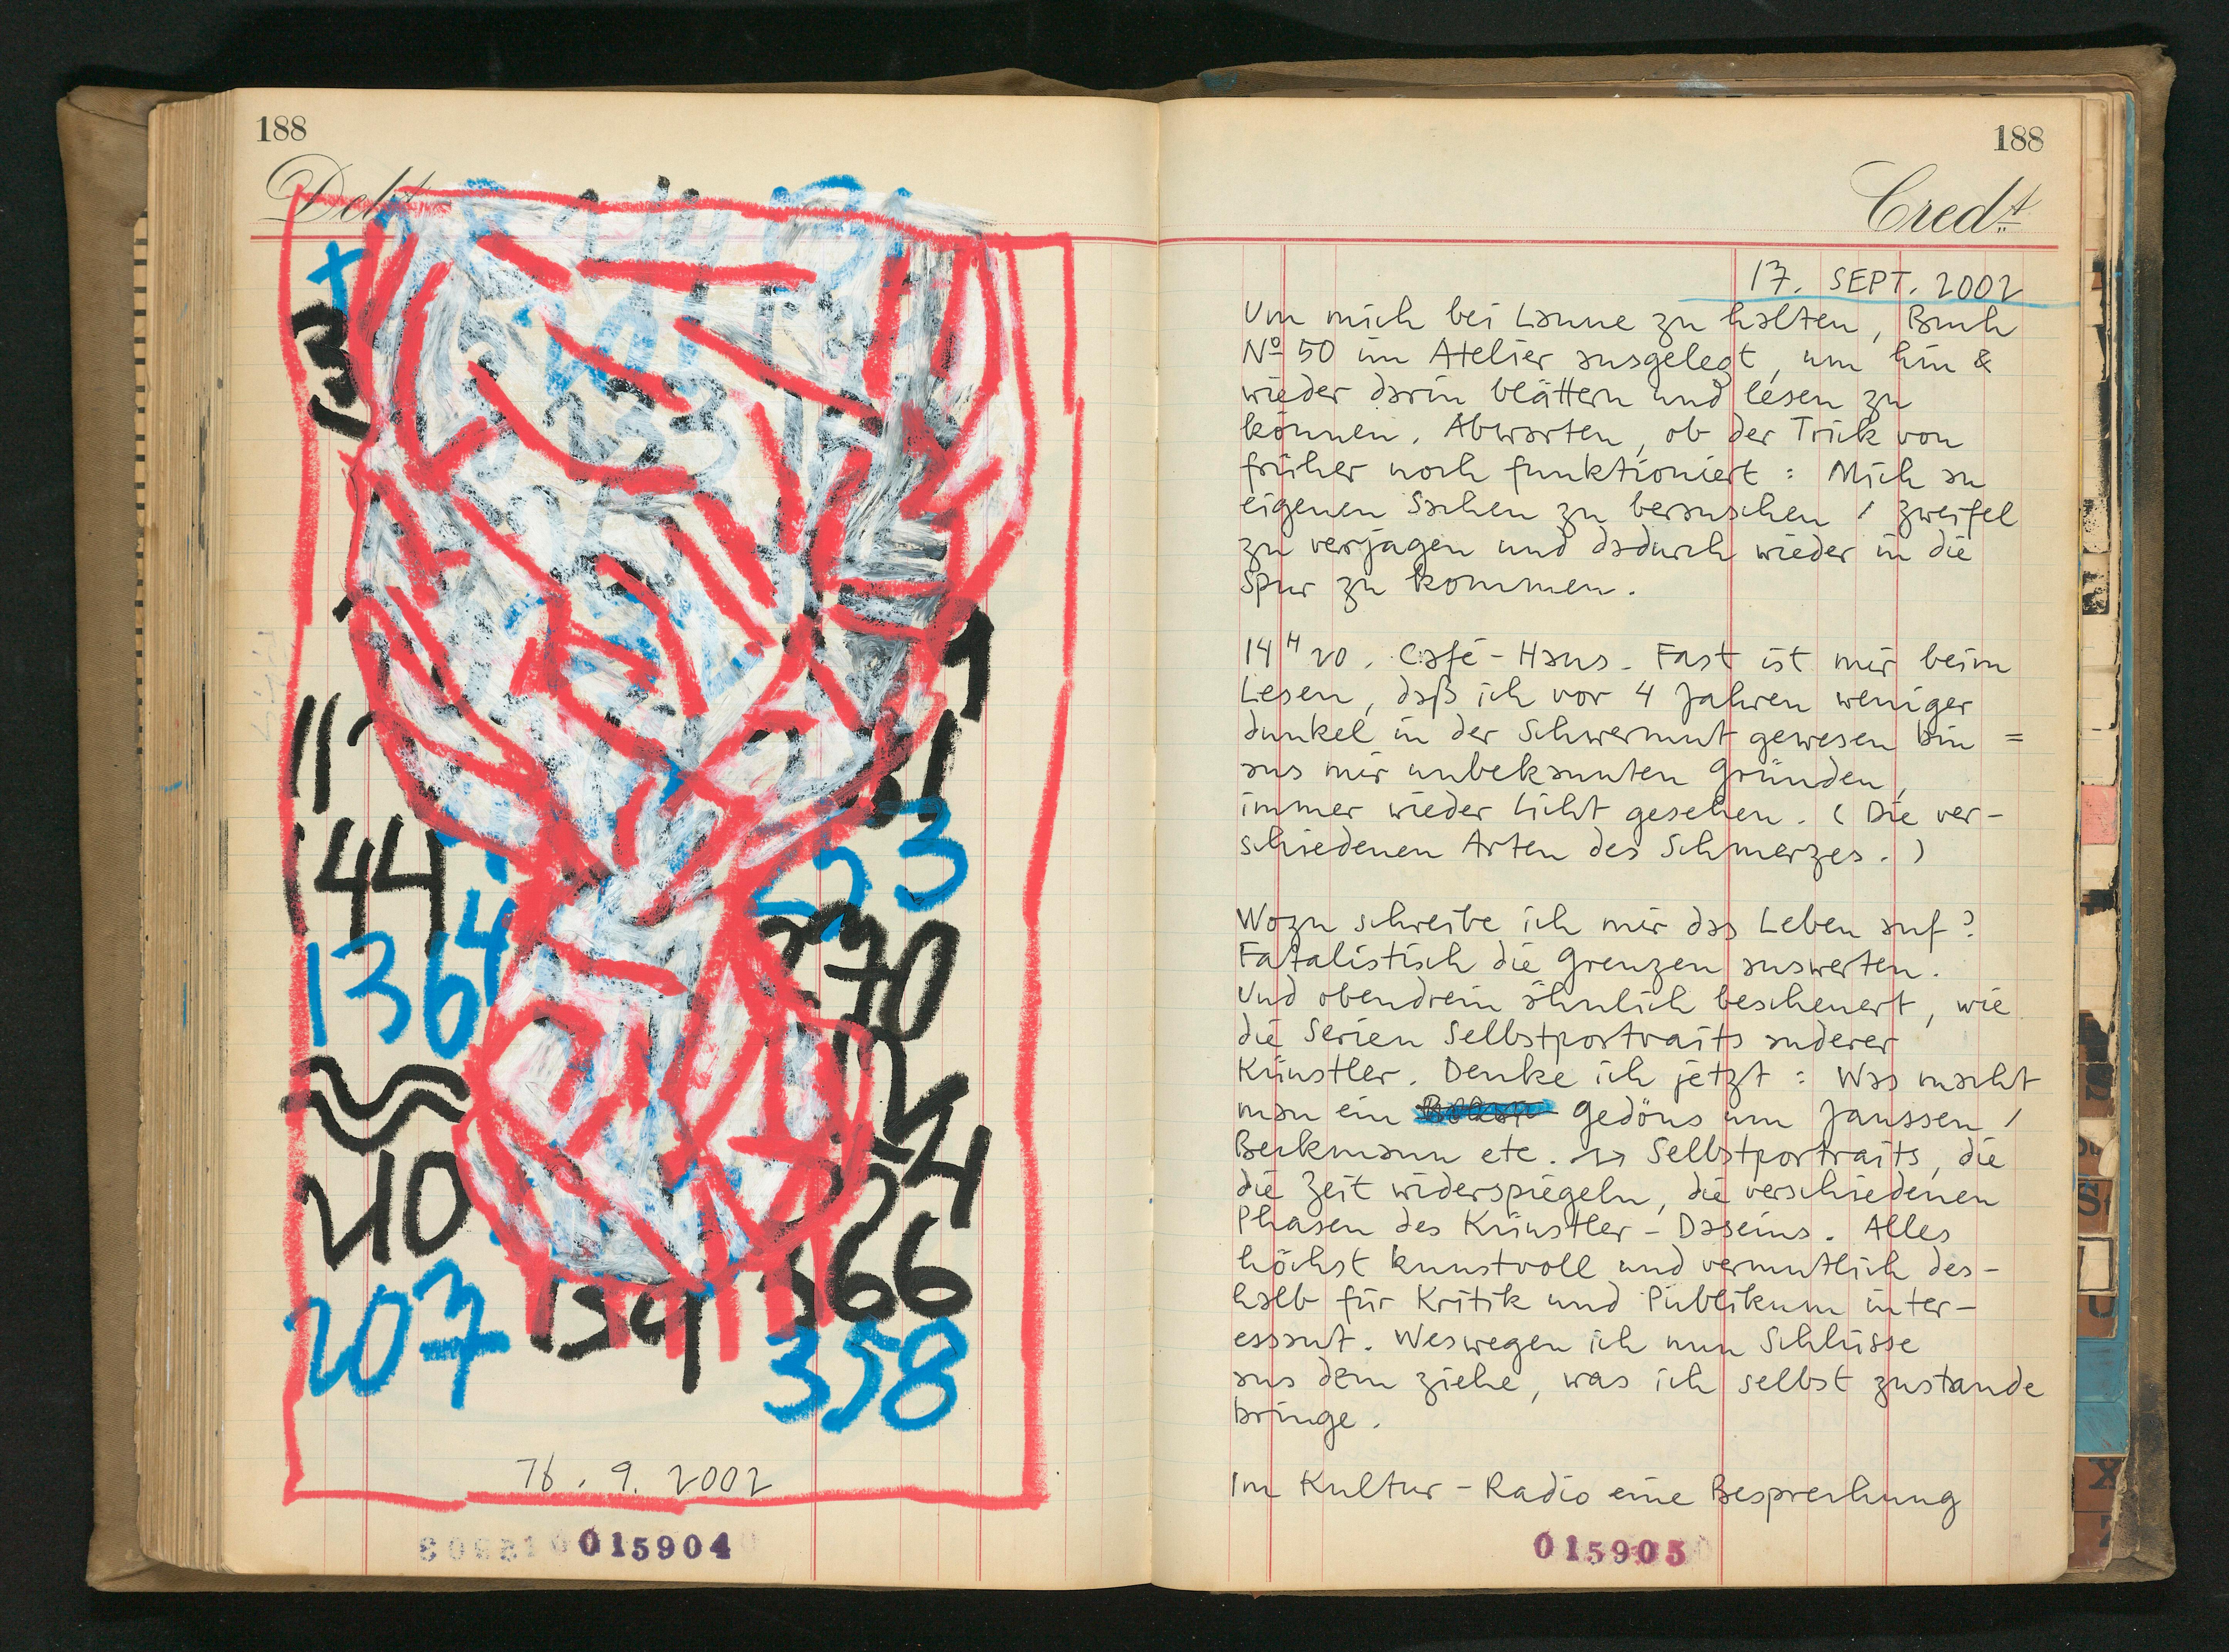 188
Debt
+
3
9
11
1
144
23
1364
70
210
54
366
207
154
358
16. 9. 2002
015904
188
Cred.t
17. SEPT. 2002
Um mich bei Laune zu halten, Buch
Nº 50 im Atelier ausgelegt, um hin &
wieder darin blättern und lesen zu
können. Abwarten, ob der Trick von
früher noch funktioniert: Mich an
eigenen Sachen zu berauschen / Zweifel
zu verjagen und dadurch wieder in die
Spur zu kommen.
14 H 20. Café-Haus. Fast ist mir beim
Lesen, daß ich vor 4 Jahren weniger
dunkel in der Schwermut gewesen bin =
aus mir unbekannten Gründen,
immer wieder Licht gesehen. (Die ver-
schiedenen Arten des Schmerzes.)
Wozu schreibe ich mir das Leben auf?
Fatalistisch die Grenzen auswerten.
Und obendrein ähnlich bescheuert, wie
die Serien Selbstportraits anderer
Künstler. Denke ich jetzt: Was macht
man ein Gedöns um Janssen /
Beckmann etc. ↔ Selbstportraits, die
die Zeit widerspiegeln, die verschiedenen
Phasen des Künstler-Daseins. Alles
höchst kunstvoll und vermutlich des-
halb für Kritik und Publikum inter-
essant. Weswegen ich nun Schlüsse
aus dem ziehe, was ich selbst zustande
bringe.
Im Kultur-Radio eine Besprechung
015905